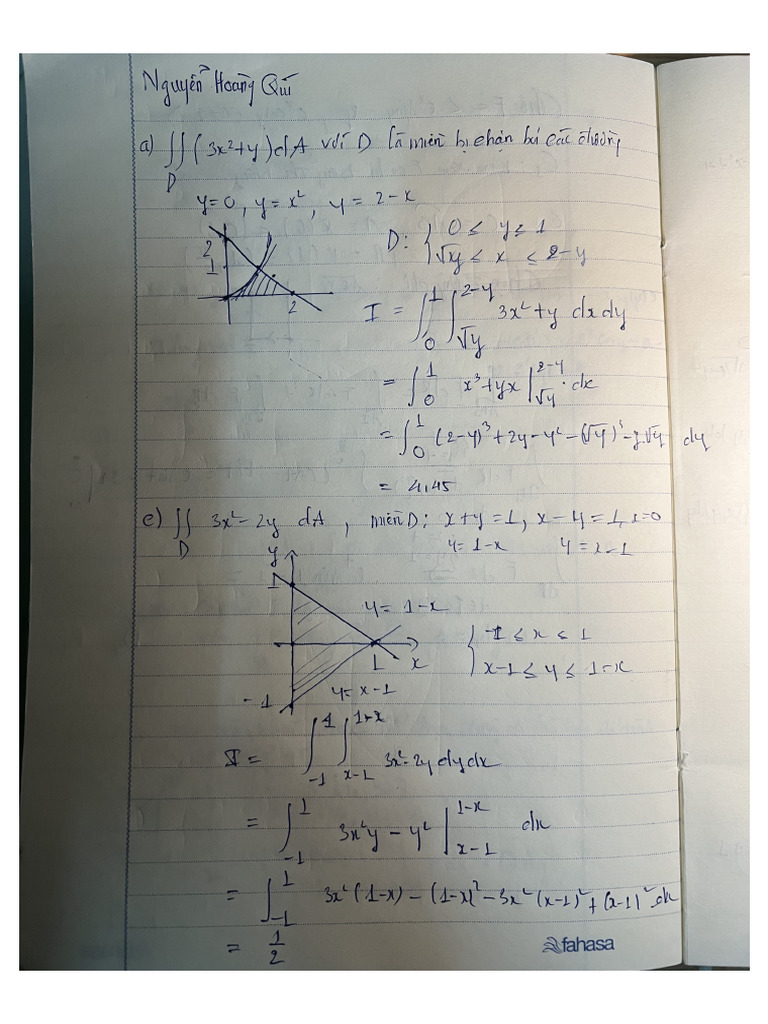 Nguyễn Hoàng Quí
a) ∬_D (3x²+y)dA với D là miền bị chặn bởi các đường
y=0, y=x², y=2-x
2
1
2
D: { 0 ≤ y ≤ 1
√y ≤ x ≤ 2-y
I = ∫_0^1 ∫_{√y}^{2-y} 3x²+y dxdy
= ∫_0^1 x³+yx |_{√y}^{2-y} dx
= ∫_0^1 (2-y)³+2y-y²-(√y)³-y√y dy
= 4,45
e) ∬_D 3x²-2y dA, miền D: x+y=1, x-y=1, x=0
y=1-x y=x-1
y
1
y=1-x
1 x
{ -1 ≤ x ≤ 1
x-1 ≤ y ≤ 1-x
y=x-1
-1
I = ∫_{-1}^1 ∫_{x-1}^{1-x} 3x²-2y dydx
= ∫_{-1}^1 3x²y-y² |_{x-1}^{1-x} dx
= ∫_{-1}^1 3x²(1-x)-(1-x)²-3x²(x-1)²+(x-1)² dx
= 1/2
fahasa